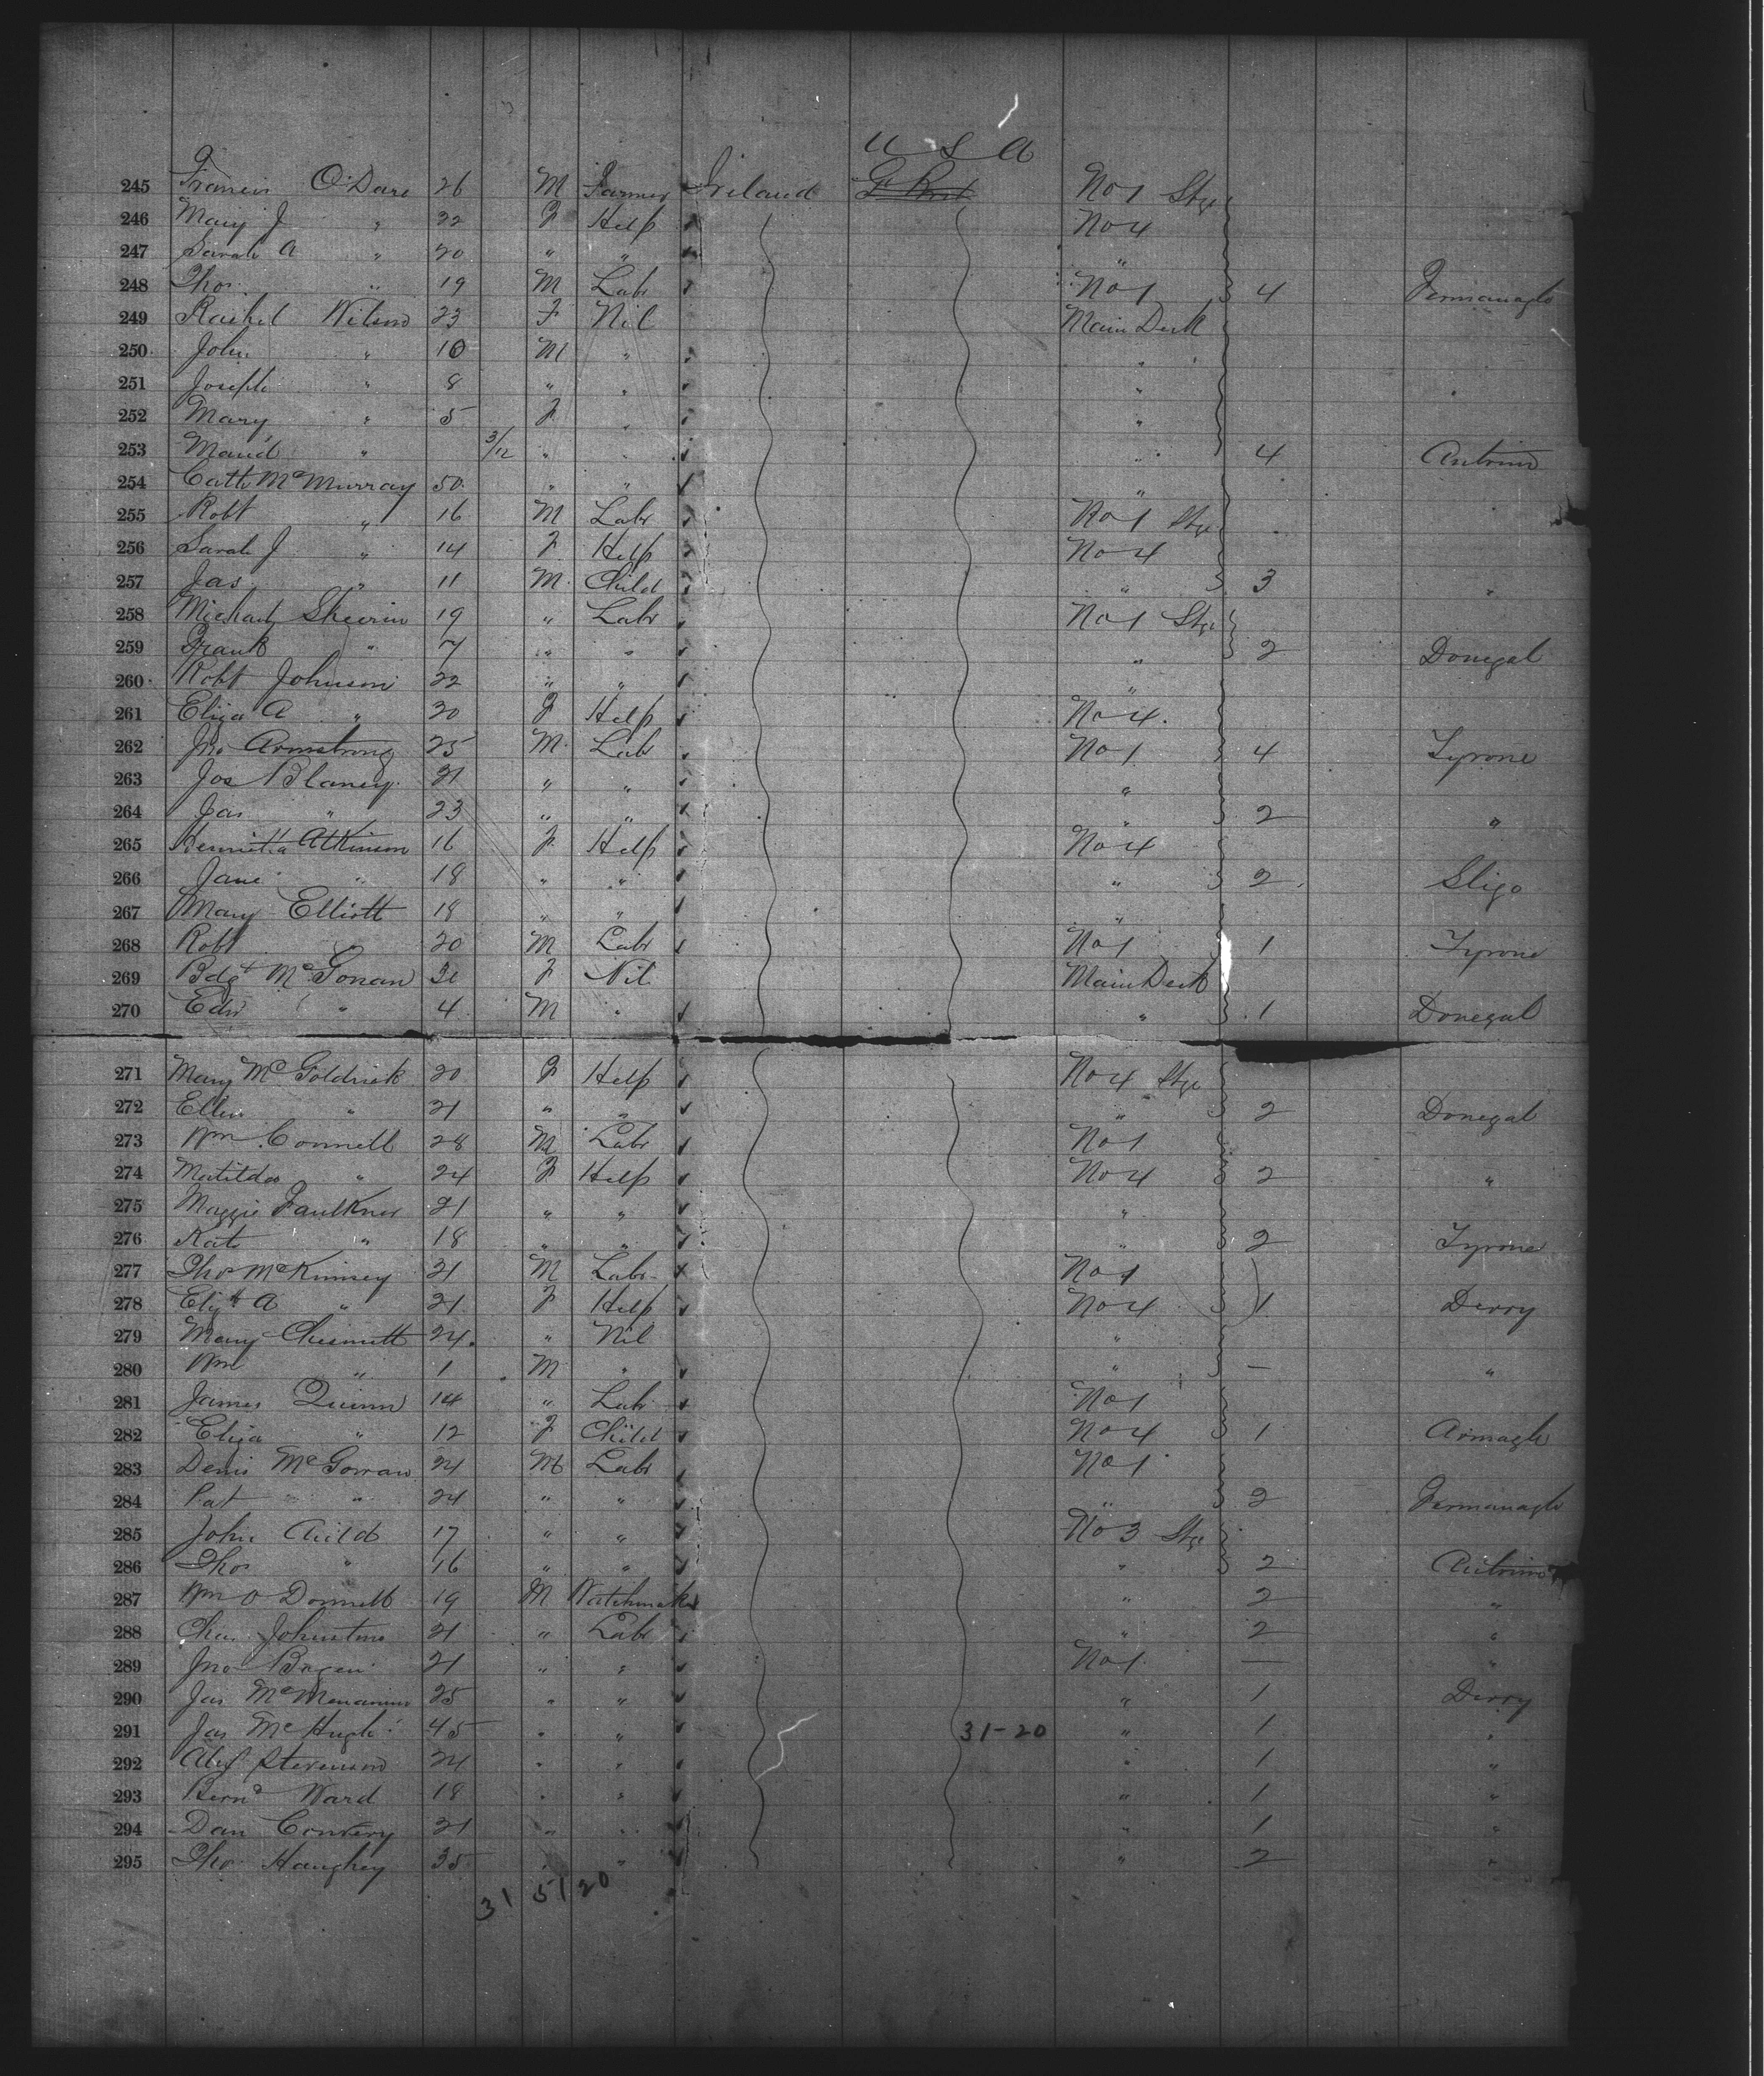 U S A
245 Francis O'Dare 26 M Farmer Ireland No 1 Stge
246 Mary J " 22 F Help No 4
247 Sarah A " 20 " " "
248 Thos " 19 M Labr No 1 4 Fermanagh
249 Rachel Wilson 23 F Nil Main Deck
250 John " 10 M " "
251 Joseph " 8 " " "
252 Mary " 5 F " "
253 Maud " 3/12 " " " 4 Antrim
254 Cath McMurray 50 " " "
255 Robt " 16 M Labr No 1 Stge
256 Sarah J " 14 F Help No 4
257 Jas " 11 M Child " 3 "
258 Michael 19 " Labr No 1 Stge
259 Frank " 7 " " " 2 Donegal
260 Robt Johnson 22 " " "
261 Eliza A " 20 F Help No 4
262 Jno Armstrong 25 M Labr No 1 4 Tyrone
263 Jos Blaney 21 " " "
264 Jas " 23 " " " 2 "
265 Henrietta Atkinson 16 F Help No 4
266 Jane " 18 " " " 2 Sligo
267 Mary Elliott 18 " " "
268 Robt " 20 M Labr No 1 1 Tyrone
269 Bdgt McGonan F Nil Main Deck
270 Edw " 4 M " " 1 Donegal
271 Mary McGoldrick 20 F Help No 4 Stge
272 Ellen " 21 " " " 2 Donegal
273 Wm Connell 28 M Labr No 1
274 Matilda " 24 F Help No 4 2 "
275 Maggie Faulkner 21 " " "
276 Kate " 18 " " " 2 Tyrone
277 Thos McKinney 21 M Labr No 1
278 Elizth A " 21 F Help No 4 1 Derry
279 Mary Chesnutt 24 " Nil "
280 Wm " 1 M " " — "
281 James Quinn 14 " Labr No 1
282 Eliza " 12 F Child No 4 1 Armagh
283 Denis McGowan 24 M Labr No 1
284 Pat " 24 " " " 2 Fermanagh
285 John Auld 17 " " No 3 Stge
286 Thos " 16 " " " 2 Antrim
287 Wm O Donnell 19 M Watchmaker " 2 "
288 Chas Johnston 21 " Labr " 2 "
289 Jno 21 " " No 1 — "
290 Jas McMenamin 25 " " " 1 Derry
291 Jas McHugh 45 " " 31-20 " 1 "
292 Alex Stevenson 24 " " " 1 "
293 Bernd Ward 18 " " " 1 "
294 Dan Convery 21 " " " 1 "
295 Thos Haughey 35 " " " 2 "
31 51 20